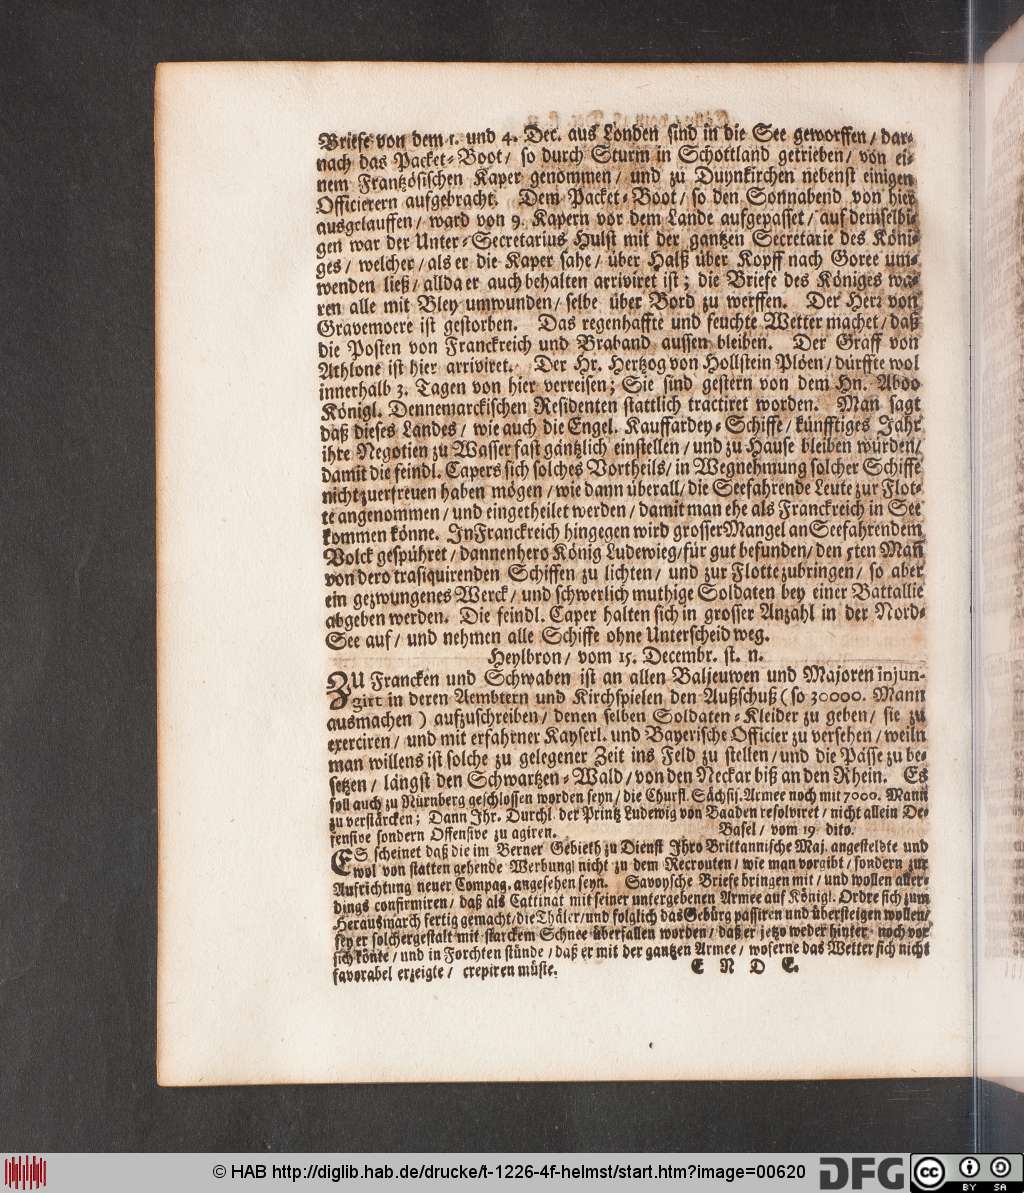 Briefe von dem 1. und 4. Dec. aus Londen sind in die See geworffen / dar-
nach das Packet-Boot / so durch Sturm in Schottland getrieben / von ei-
nem Frantzösischen Kaper genommen / und zu Duynkirchen nebenst einigen
Officierern aufgebracht. Dem Packet-Boot / so den Sonnabend von hier
ausgelauffen / ward von 9. Kapern vor dem Lande aufgepasset / auf demselbi-
gen war der Unter-Secretarius Hulst mit der gantzen Secretarie des Köni-
ges / welcher / als er die Kaper sahe / über Halß über Kopff nach Goree um-
wenden ließ / allda er auch behalten arriviret ist; die Briefe des Königes wa-
ren alle mit Bley umwunden / selbe über Bord zu werffen. Der Herr von
Gravemoere ist gestorben. Das regenhaffte und feuchte Wetter machet / daß
die Posten von Franckreich und Braband aussen bleiben. Der Graff von
Athlone ist hier arriviret. Der Hr. Hertzog von Hollstein Plöen / dürffte wol
innerhalb 3. Tagen von hier verreisen; Sie sind gestern von dem Hn. Aboo
Königl. Dennemarckischen Residenten stattlich tractiret worden. Man sagt
daß dieses Landes / wie auch die Engel. Kauffardey-Schiffe / künfftiges Jahr
ihre Negotien zu Wasser fast gäntzlich einstellen / und zu Hause bleiben würden /
damit die feindl. Capers sich solches Vortheils / in Wegnehmung solcher Schiffe
nicht zuerfreuen haben mögen / wie dann überall / die Seefahrende Leute zur Flot-
te angenommen / und eingetheilet werden / damit man ehe als Franckreich in See
kommen könne. In Franckreich hingegen wird grosser Mangel an Seefahrendem
Volck gespühret / dannenhero König Ludewieg / für gut befunden / den 5ten Mañ
von dero trafiquirenden Schiffen zu lichten / und zur Flotte zubringen / so aber
ein gezwungenes Werck / und schwerlich muthige Soldaten bey einer Battallie
abgeben werden. Die feindl. Caper halten sich in grosser Anzahl in der Nord-
See auf / und nehmen alle Schiffe ohne Unterscheid weg.
Heylbron / vom 15. Decembr. st. n.
ZU Francken und Schwaben ist an allen Baljeuwen und Majoren injun-
girt in deren Aembtern und Kirchspielen den Außschuß ( so 30000. Mann
ausmachen ) aufzuschreiben / denen selben Soldaten-Kleider zu geben / sie zu
exerciren / und mit erfahrner Kayserl. und Bayerische Officier zu versehen / weiln
man willens ist solche zu gelegener Zeit ins Feld zu stellen / und die Pässe zu be-
setzen / längst den Schwartzen-Wald / von den Neckar biß an den Rhein. Es
soll auch zu Nürnberg geschlossen worden seyn / die Churfl. Sächsis. Armee noch mit 7000. Mann
zu verstärcken; Dann Ihr. Durchl. der Printz Ludewig von Baaden resolviret / nicht allein De-
fensive sondern Offensive zu agiren. Basel / vom 19 dito.
ES scheinet daß die im Berner Gebieth zu Dienst Ihro Brittannische Maj. angesteldte und
wol von statten gehende Werbung / nicht zu dem Recrouten / wie man vorgibt / sondern zur
Aufrichtung neuer Compag. angesehen seyn. Savoysche Briefe bringen mit / und wollen aller-
dings confirmiren / daß als Cattinat mit seiner untergebenen Armee auf Königl. Ordre sich zum
Herausmarch fertig gemacht / die Thäler / und folglich das Gebürg passiren und übersteigen wollen /
sey er solchergestalt mit starckem Schnee überfallen worden / daß er jetzo weder hinter- noch vor
sich könte / und in Forchten stünde / daß er mit der gantzen Armee / woferne das Wetter sich nicht
favorabel erzeigte / crepiren müste. E N D E.
© HAB http://diglib.hab.de/drucke/t-1226-4f-helmst/start.htm?image=00620 DFG cc BY SA